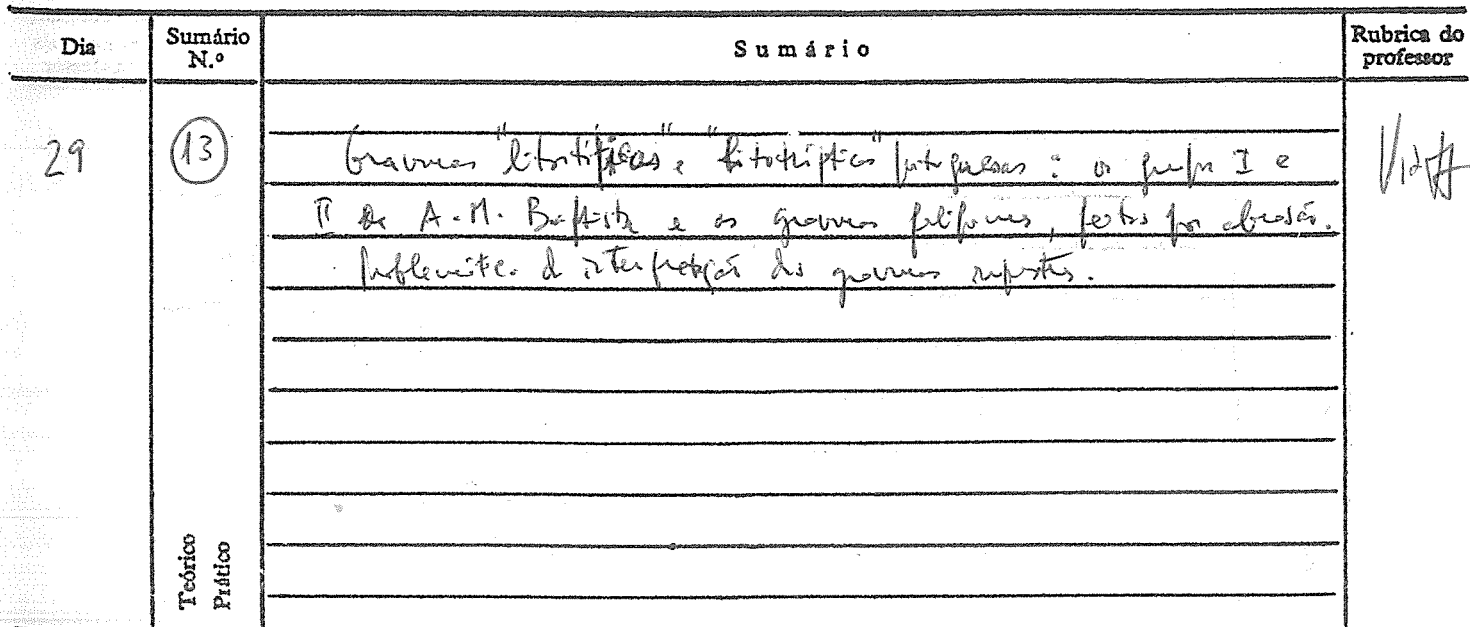 Dia
Sumário N.º
Sumário
Rubrica do professor
29
13
Gravuras "litotríficas" e "litotrípticas" portuguesas : os grupos I e
II de A. M. Baptista e as gravuras filiformes, feitas por abrasão.
Problemática da interpretação das gravuras rupestres.
Teórico
Prático